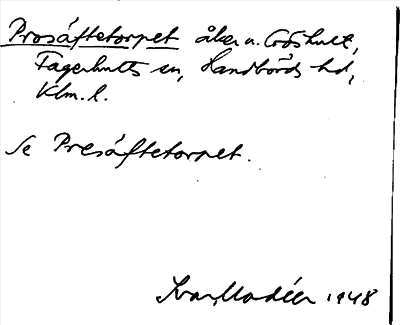 Prosáftetorpet åker u. Crôshult,
Fagerhults sn, Handbörds hd,
Klm. l.
Se Presáftetorpet.
Ivar Modéer 1948